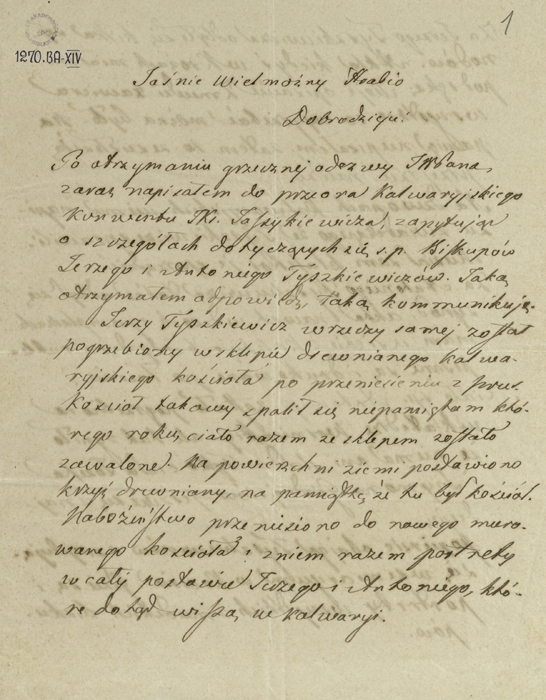 1
1270.BA-XIV
Jaśnie Wielmożny Hrabio
Dobrodzieju!
Po otrzymaniu grzecznej odezwy JWPana,
zaraz napisałem do przeora Kalwaryjskiego
Konwentu X. Taszykiewicza, zapytując
o szczegółach dotyczących się ś.p. Biskupów
Jerzego i Antoniego Tyszkiewiczów. Jaką
otrzymałem odpowiedź, taką kommunikuję.
Jerzy Tyszkiewicz w rzeczy samej został
pogrzebiony w sklepie drewnianego Kalwa-
ryjskiego kościoła po przeniesieniu z Prus
Kościoł takowy spalił się niepamiętam któ-
rego roku, ciało razem ze sklepem zostało
zawalone. Na powierzchni ziemi postawiono
krzyż drewniany, na pamiątkę że tu był kościoł.
Nabożeństwo przeniesiono do nowego muro-
wanego kościoła i z niem razem portrety
w całej postawie Jerzego i Antoniego, któ-
re dotąd wiszą w Kalwaryi.